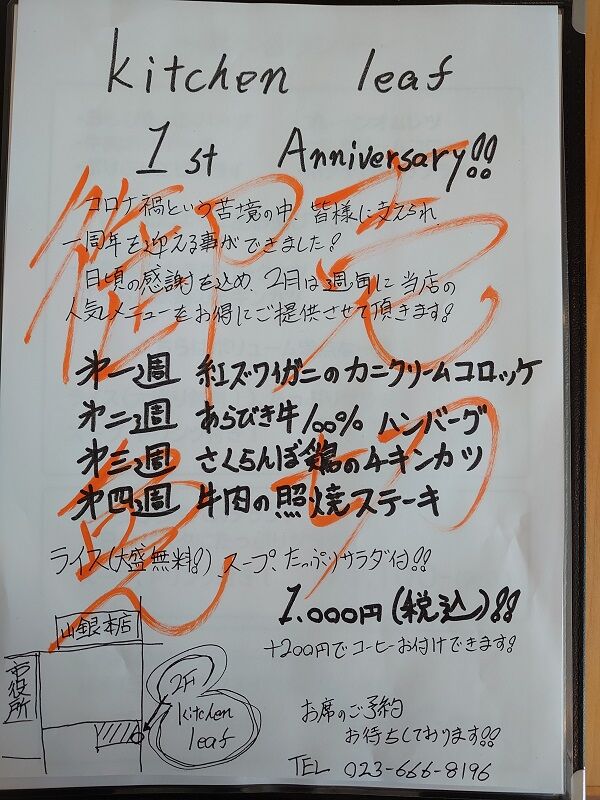 kitchen leaf
1st Anniversary!!
コロナ禍という苦境の中、皆様に支えられ
一周年を迎える事ができました!
日頃の感謝を込め、2月は週毎に当店の
人気メニューをお得にご提供させて頂きます!
御礼
第一週 紅ズワイガニのカニクリームコロッケ
第二週 あらびき牛100%ハンバーグ
第三週 さくらんぼ鶏のチキンカツ
第四週 牛肉の照焼ステーキ
ライス(大盛無料!)、スープ、たっぷりサラダ付!!
1.000円(税込)!!
+200円でコーヒーお付けできます!
山銀本店
市役所
2F
kitchen
leaf
お席のご予約
お待ちしております!!
TEL 023-666-8196